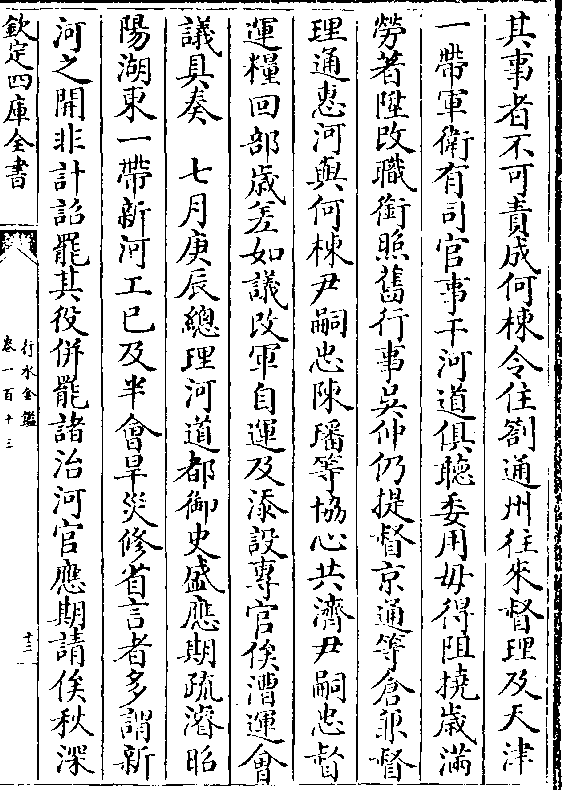 其事者不可責成何棟令住劄通州往來督理及天津
一帶軍衛有司官事干河道俱聽委用毋得阻撓歳滿
勞著陞改職銜照舊行事吳仲仍提督京通等倉兼督
理通惠河與何棟尹嗣忠陳璠等協心共濟尹嗣忠督
運糧回部歳差如議改軍自運及添設專官俟漕運會
議具奏　七月庚辰總理河道都御史盛應期疏濬昭
陽湖東一帶新河工已及半會旱災修省言者多謂新
河之開非計詔罷其役併罷諸治河官應期請俟秋深
欽定四庫全書
行水金鑑
卷一百十三
十三